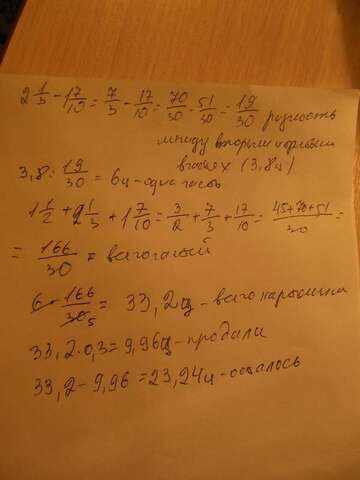 2 1/3 - 17/10 = 7/3 - 17/10 = 70/30 - 51/30 = 19/30 разность
между вторым и первым
в частях (3,8ц)
3,8 : 19/30 = 6ц - одна часть
1 1/2 + 2 1/3 + 1 7/10 = 3/2 + 7/3 + 17/10 = 45+70+51/30 =
= 166/30 = всего частей
6 · 166/30 5 = 33,2ц - всего картошки
33,2 · 0,3 = 9,96ц - продали
33,2 - 9,96 = 23,24ц - осталось